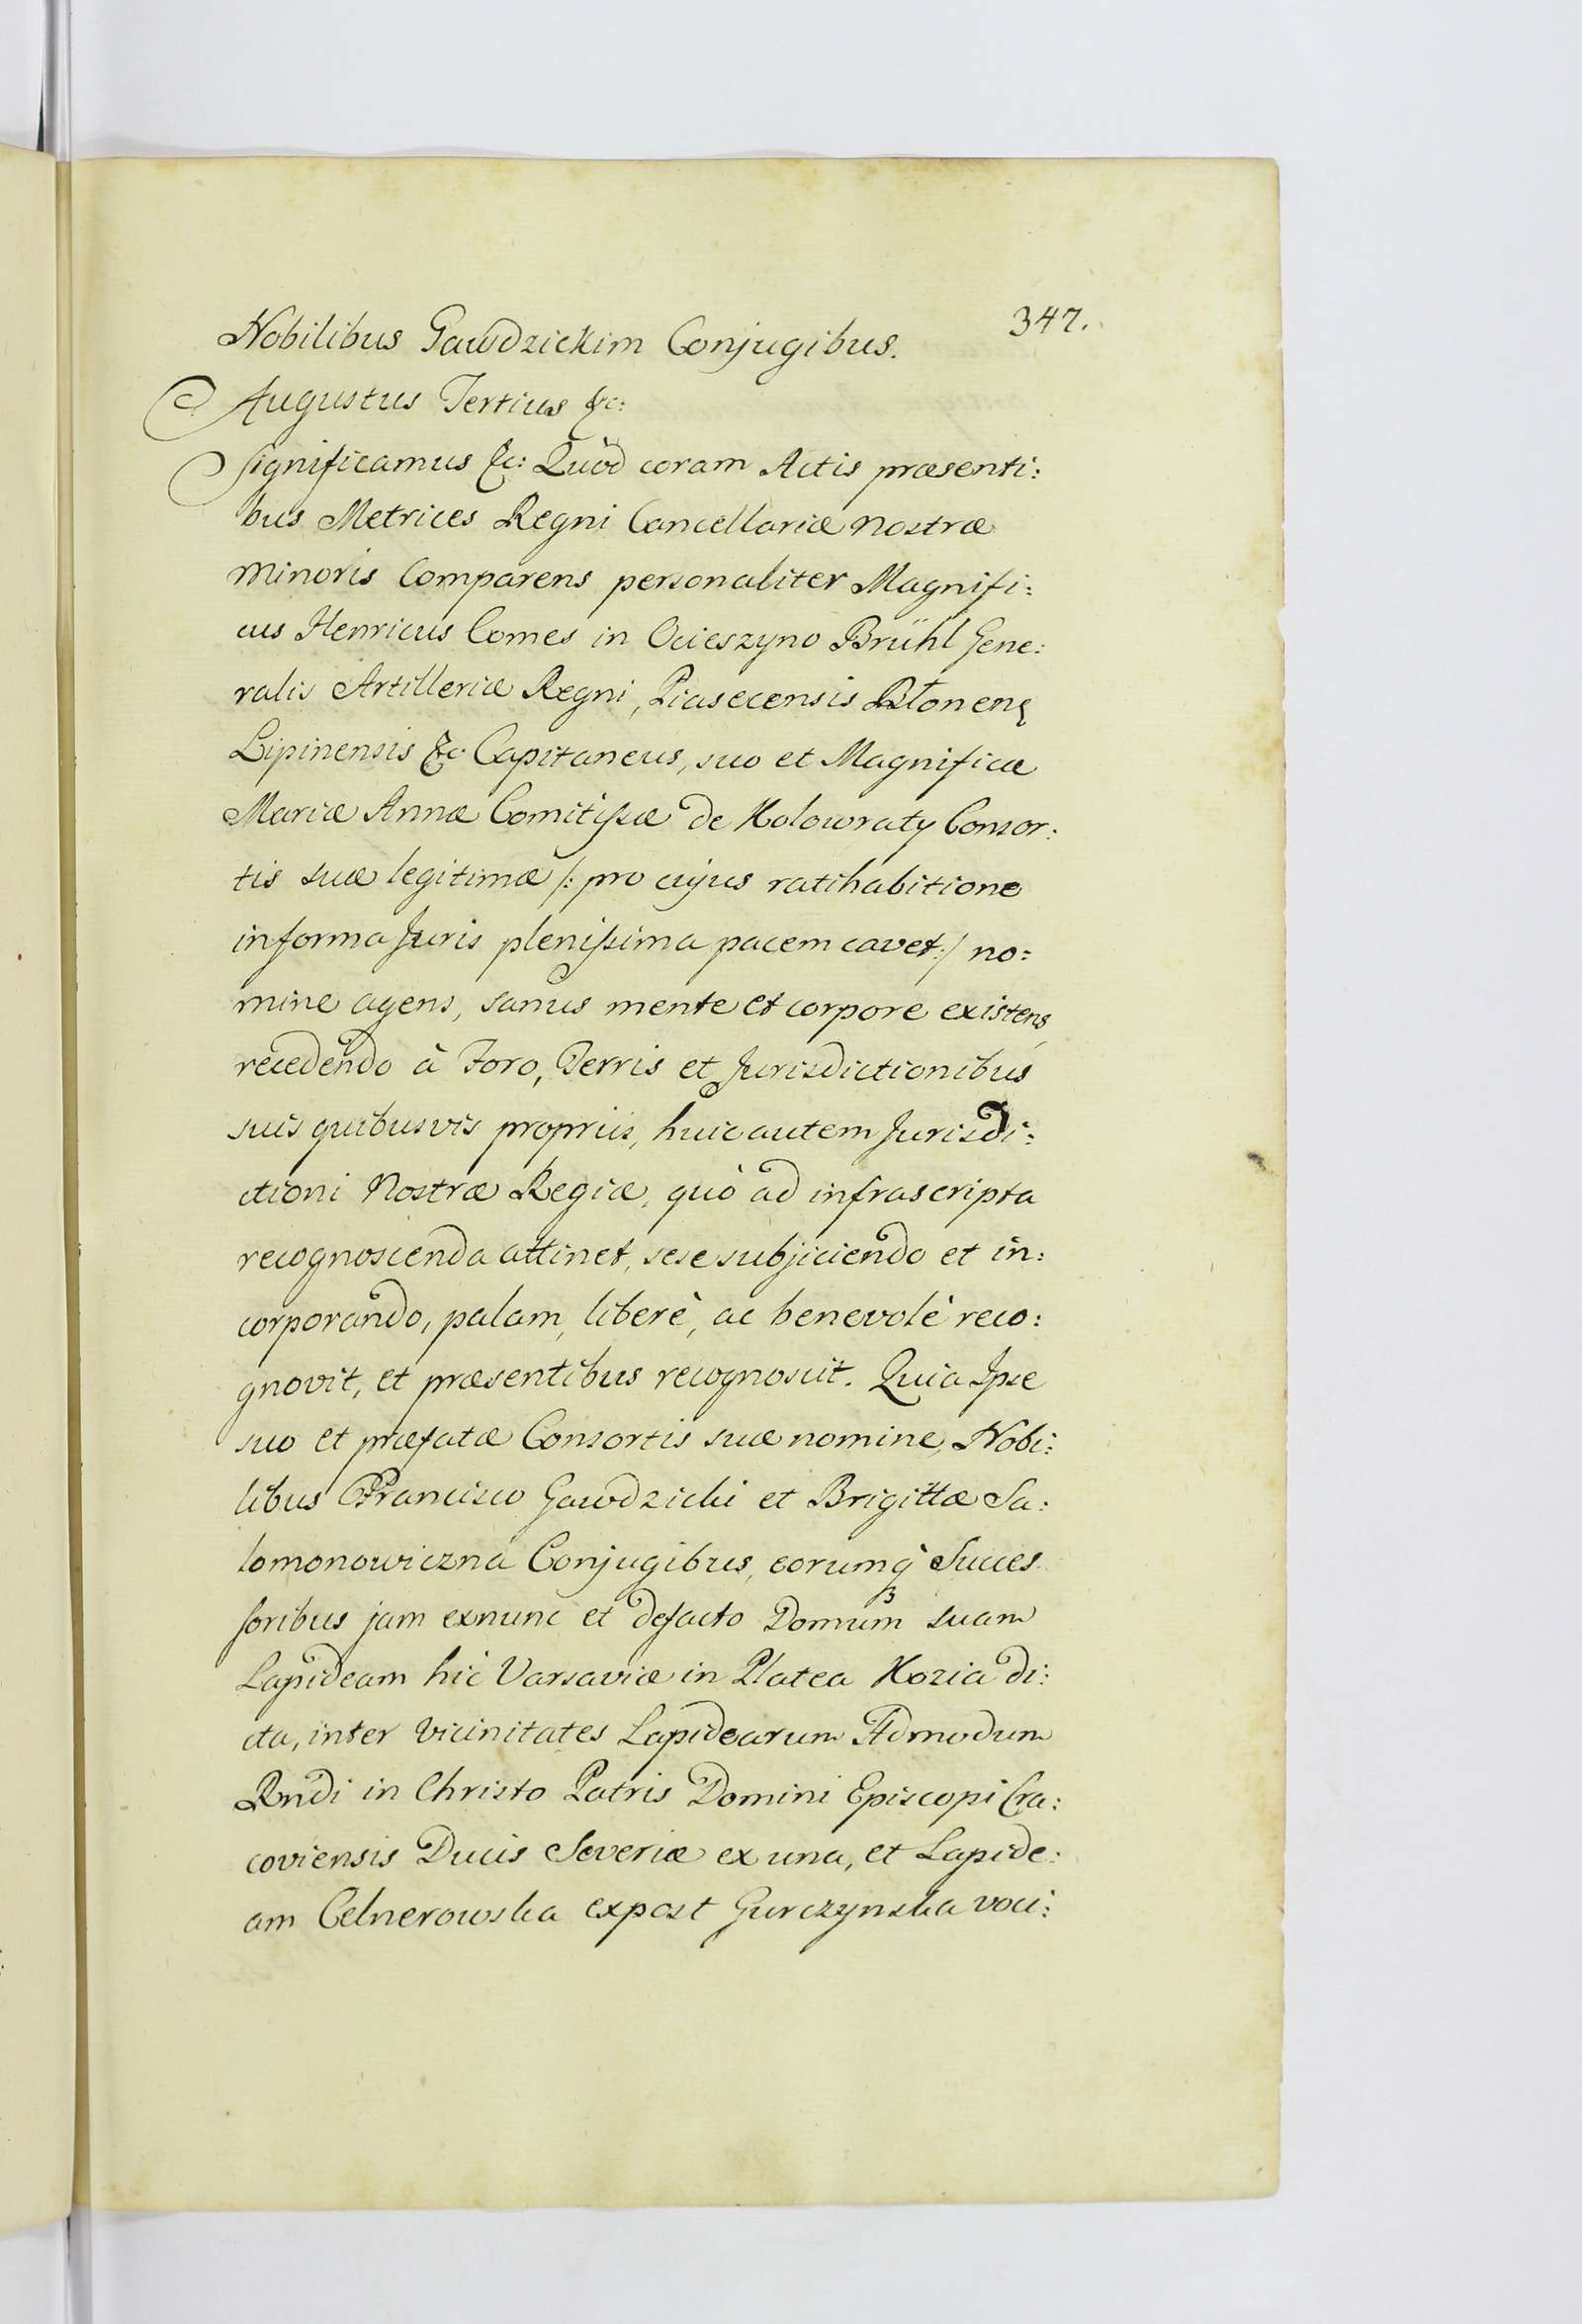 347.
Nobilibus Gawdzickim Conjugibus.
Augustus Tertius &c:
Significamus &c: Quòd coram Actis præsenti:
bus Metrices Regni Cancellariæ nostræ
minoris Comparens personaliter Magnifi:
cus Henricus Comes in Ocieszyno Brühl Gene:
ralis Artilleriæ Regni, Piasecensis Błonens
Lipinensis &c Capitaneus, suo et Magnificæ
Mariæ Annæ Comitissæ de Kolowraty Consor:
tis suæ legitimæ /: pro cujus ratihabitione
informa Juris plenissima pacem cavet :/ no:
mine agens, sanus mente et corpore existens
recedendo à Foro, Terris et Jurisdictionibus
suis quibusvis propriis, huic autem Jurisdi:
ctioni Nostræ Regiæ, quò ad infrascripta
recognoscenda attinet, sese subjiciendo et in:
corporando, palam, liberè, ac benevolè reco:
gnovit, et præsentibus recognoscit. Quia Ipse
suo et præfatæ Consortis suæ nomine, Nobi:
libus Francisco Gawdzicki et Brigittæ Sa:
lomonowiczna Conjugibus, eorumq̀ Succes
soribus jam exnunc et defacto Domum suam
Lapideam hic Varsaviæ in Platea Kozia di:
cta, inter vicinitates Lapidearum Admodum
Rndi in Christo Patris Domini Episcopi Cra:
coviensis Ducis Severiæ ex una, et Lapide:
am Celnerowska expost Gurczynska voci: